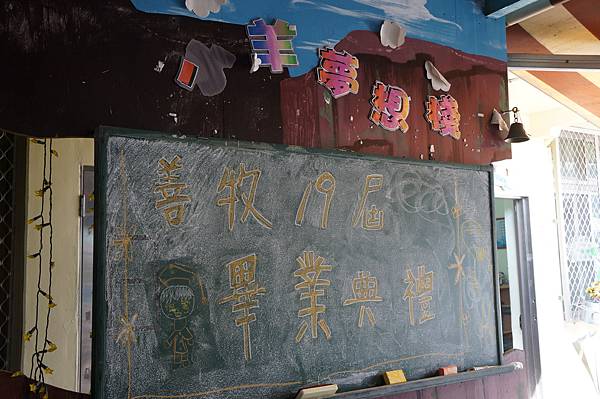 羊夢想棧
善牧19屆
畢業典禮